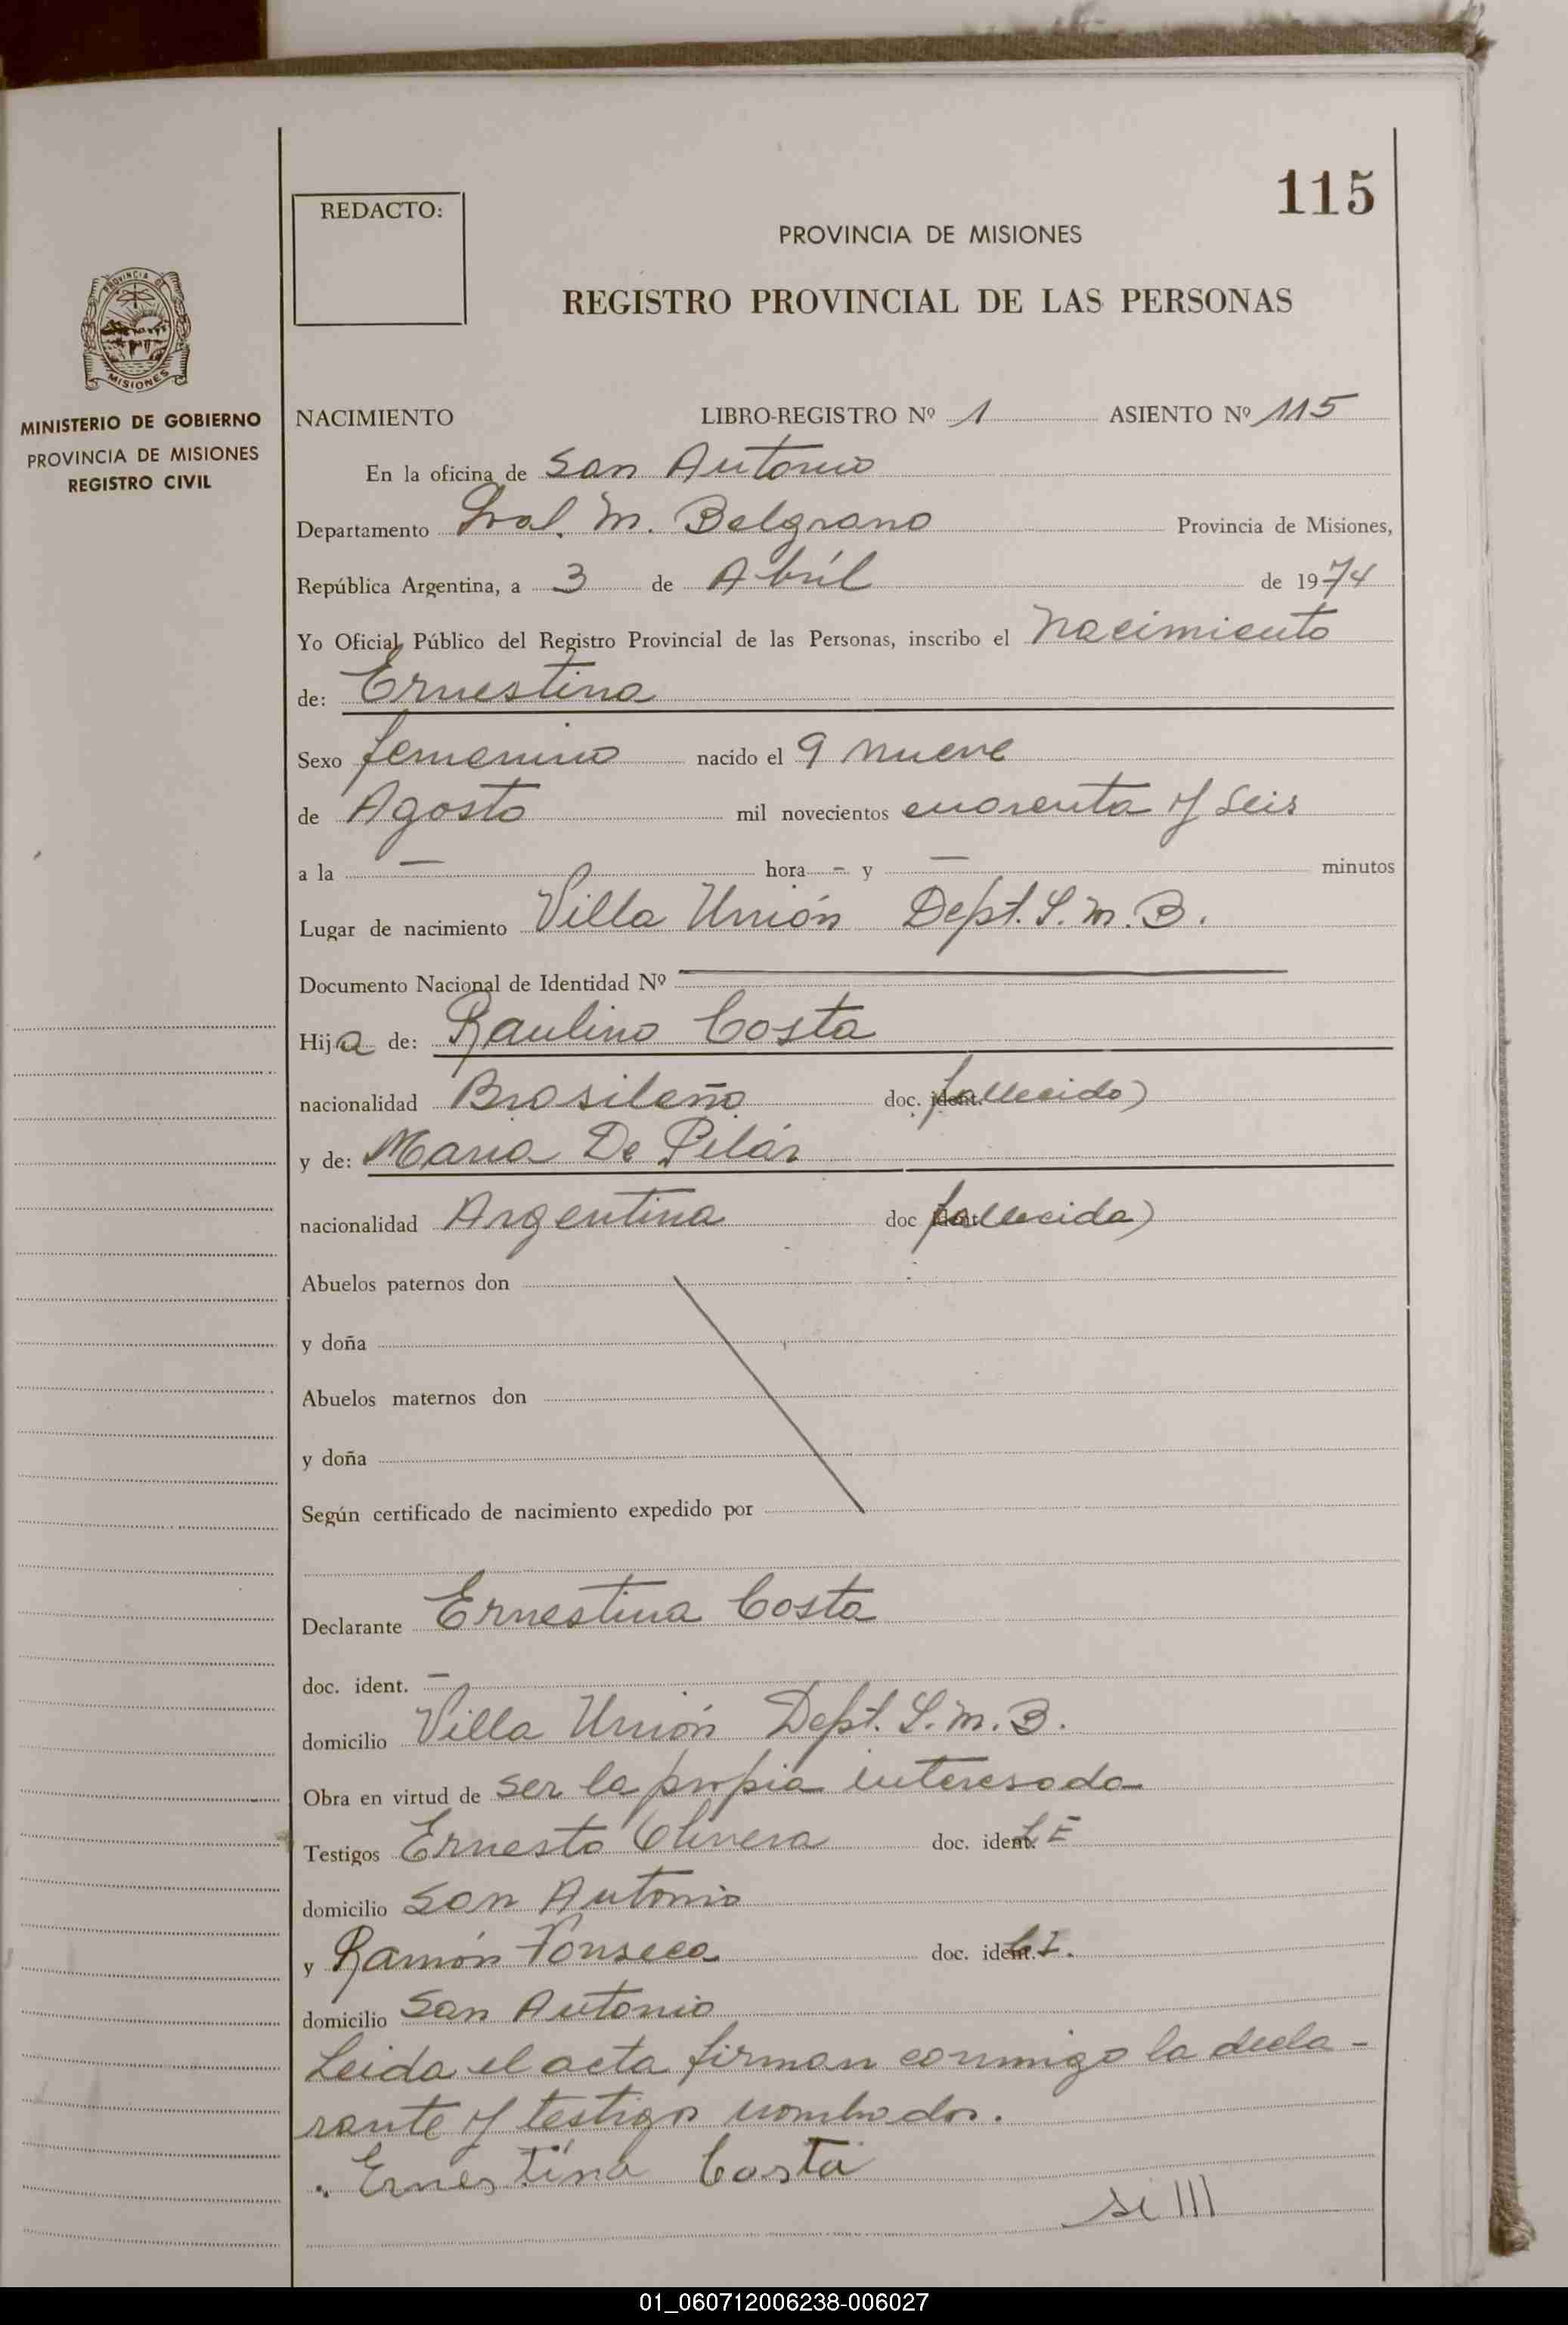 115
REDACTO:
PROVINCIA DE MISIONES
REGISTRO PROVINCIAL DE LAS PERSONAS
PROVINCIA DE
MISIONES
MINISTERIO DE GOBIERNO
PROVINCIA DE MISIONES
REGISTRO CIVIL
NACIMIENTO LIBRO-REGISTRO Nº 1 ASIENTO Nº 115
En la oficina de San Antonio
Departamento Gral. M. Belgrano Provincia de Misiones,
República Argentina, a 3 de Abríl de 1974
Yo Oficial Público del Registro Provincial de las Personas, inscribo el Nacimiento
de: Ernestina
Sexo femenino nacido el 9 nueve
de Agosto mil novecientos cuarenta y seis
a la — hora - y — minutos
Lugar de nacimiento Villa Unión Dept. G.M.B.
Documento Nacional de Identidad Nº
Hija de: Raulino Costa
nacionalidad Brasileño doc. ident. fallecido)
y de: Maria De Pilár
nacionalidad Argentina doc ident fallecida)
Abuelos paternos don
y doña
Abuelos maternos don
y doña
Según certificado de nacimiento expedido por
Declarante Ernestina Costa
doc. ident. —
domicilio Villa Unión Dept. G.M.B.
Obra en virtud de ser la propia interesada
Testigos Ernesto Olivera doc. ident. L E
domicilio San Antonio
y Ramón Fonseca doc. ident. C.I.
domicilio San Antonio
Leida el acta firman conmigo la decla-
rante y testigos nombrados.
Ernestina Costa
01_060712006238-006027